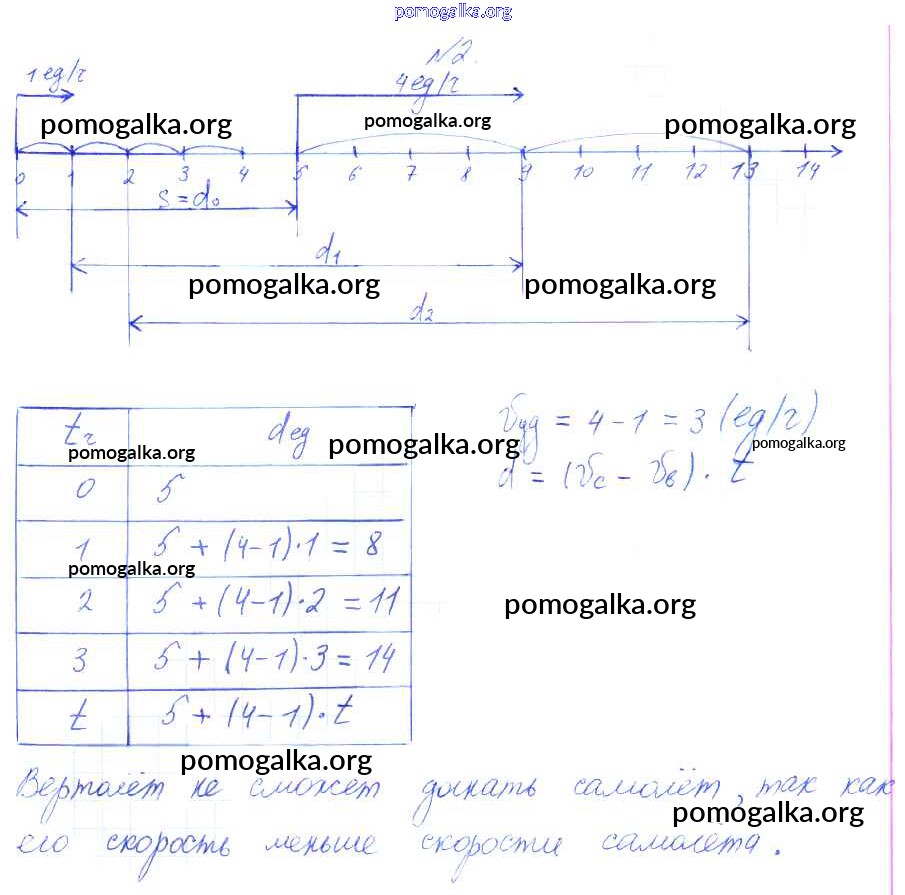 pomogalka.org
№2.
1 ед/г 4 ед/г
pomogalka.org pomogalka.org pomogalka.org
0 1 2 3 4 5 6 7 8 9 10 11 12 13 14
S = d₀
d₁
pomogalka.org pomogalka.org
d₂
tг dед
pomogalka.org pomogalka.org
0 5
1 5 + (4-1)·1 = 8
pomogalka.org
2 5 + (4-1)·2 = 11
3 5 + (4-1)·3 = 14
t 5 + (4-1)·t
υуд = 4 - 1 = 3 (ед/г)
pomogalka.org
d = (υс - υв)· t
pomogalka.org
pomogalka.org
Вертолёт не сможет догнать самолёт, так как
pomogalka.org
его скорость меньше скорости самолёта.